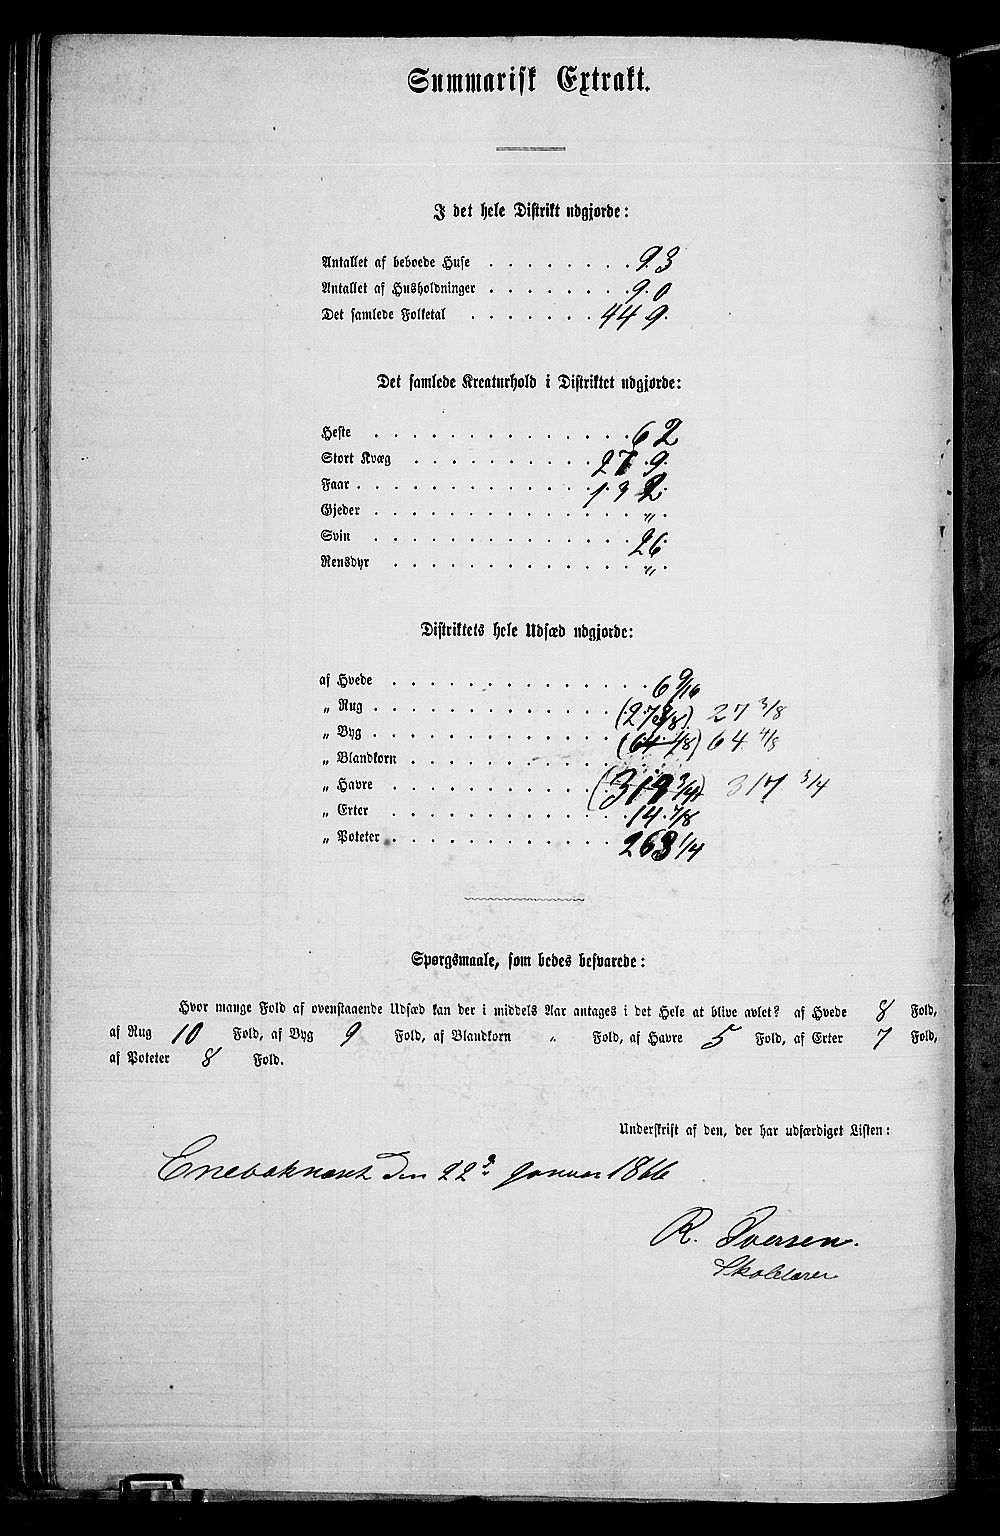 Summarisk Extrakt.
I det hele Distrikt udgjorde:
Antallet af beboede Huse . . . . . . . . 93
Antallet af Husholdninger . . . . . . . . 90
Det samlede Folketal . . . . . . . 449.
Det samlede Kreaturhold i Distriktet udgjorde:
Heste . . . . . . . . . . . . . . 62
Stort Kvæg . . . . . . . . . . . 279.
Faar . . . . . . . . . . . . . 132.
Gjeder . . . . . . . . . . . . . . "
Svin . . . . . . . . . . . . . . 26.
Rensdyr . . . . . . . . . . . . . "
Distriktets hele Udsæd udgjorde:
af Hvede . . . . . . . . . . . . . 6 9/16
„ Rug . . . . . . . . . . . . . (27 3/8) 27 3/8
„ Byg . . . . . . . . . . . . . (64 4/8) 64 4/8
„ Blandkorn . . . . . . . . . . . .
„ Havre . . . . . . . . . . . . (317 3/4) 317 3/4
„ Erter . . . . . . . . . . . . . 14 7/8
„ Poteter . . . . . . . . . . . . 263 1/4
Spørgsmaale, som bedes besvarede:
Hvor mange Fold af ovenstaaende Udsæd kan der i middels Aar antages i det Hele at blive avlet? af Hvede 8 Fold,
af Rug 10 Fold, af Byg 9 Fold, af Blandkorn " Fold, af Havre 5 Fold, af Erter 7 Fold,
af Poteter 8 Fold.
Underskrift af den, der har udfærdiget Listen:
den 22 Januar 1866
R. Iversen.
Skolelærer